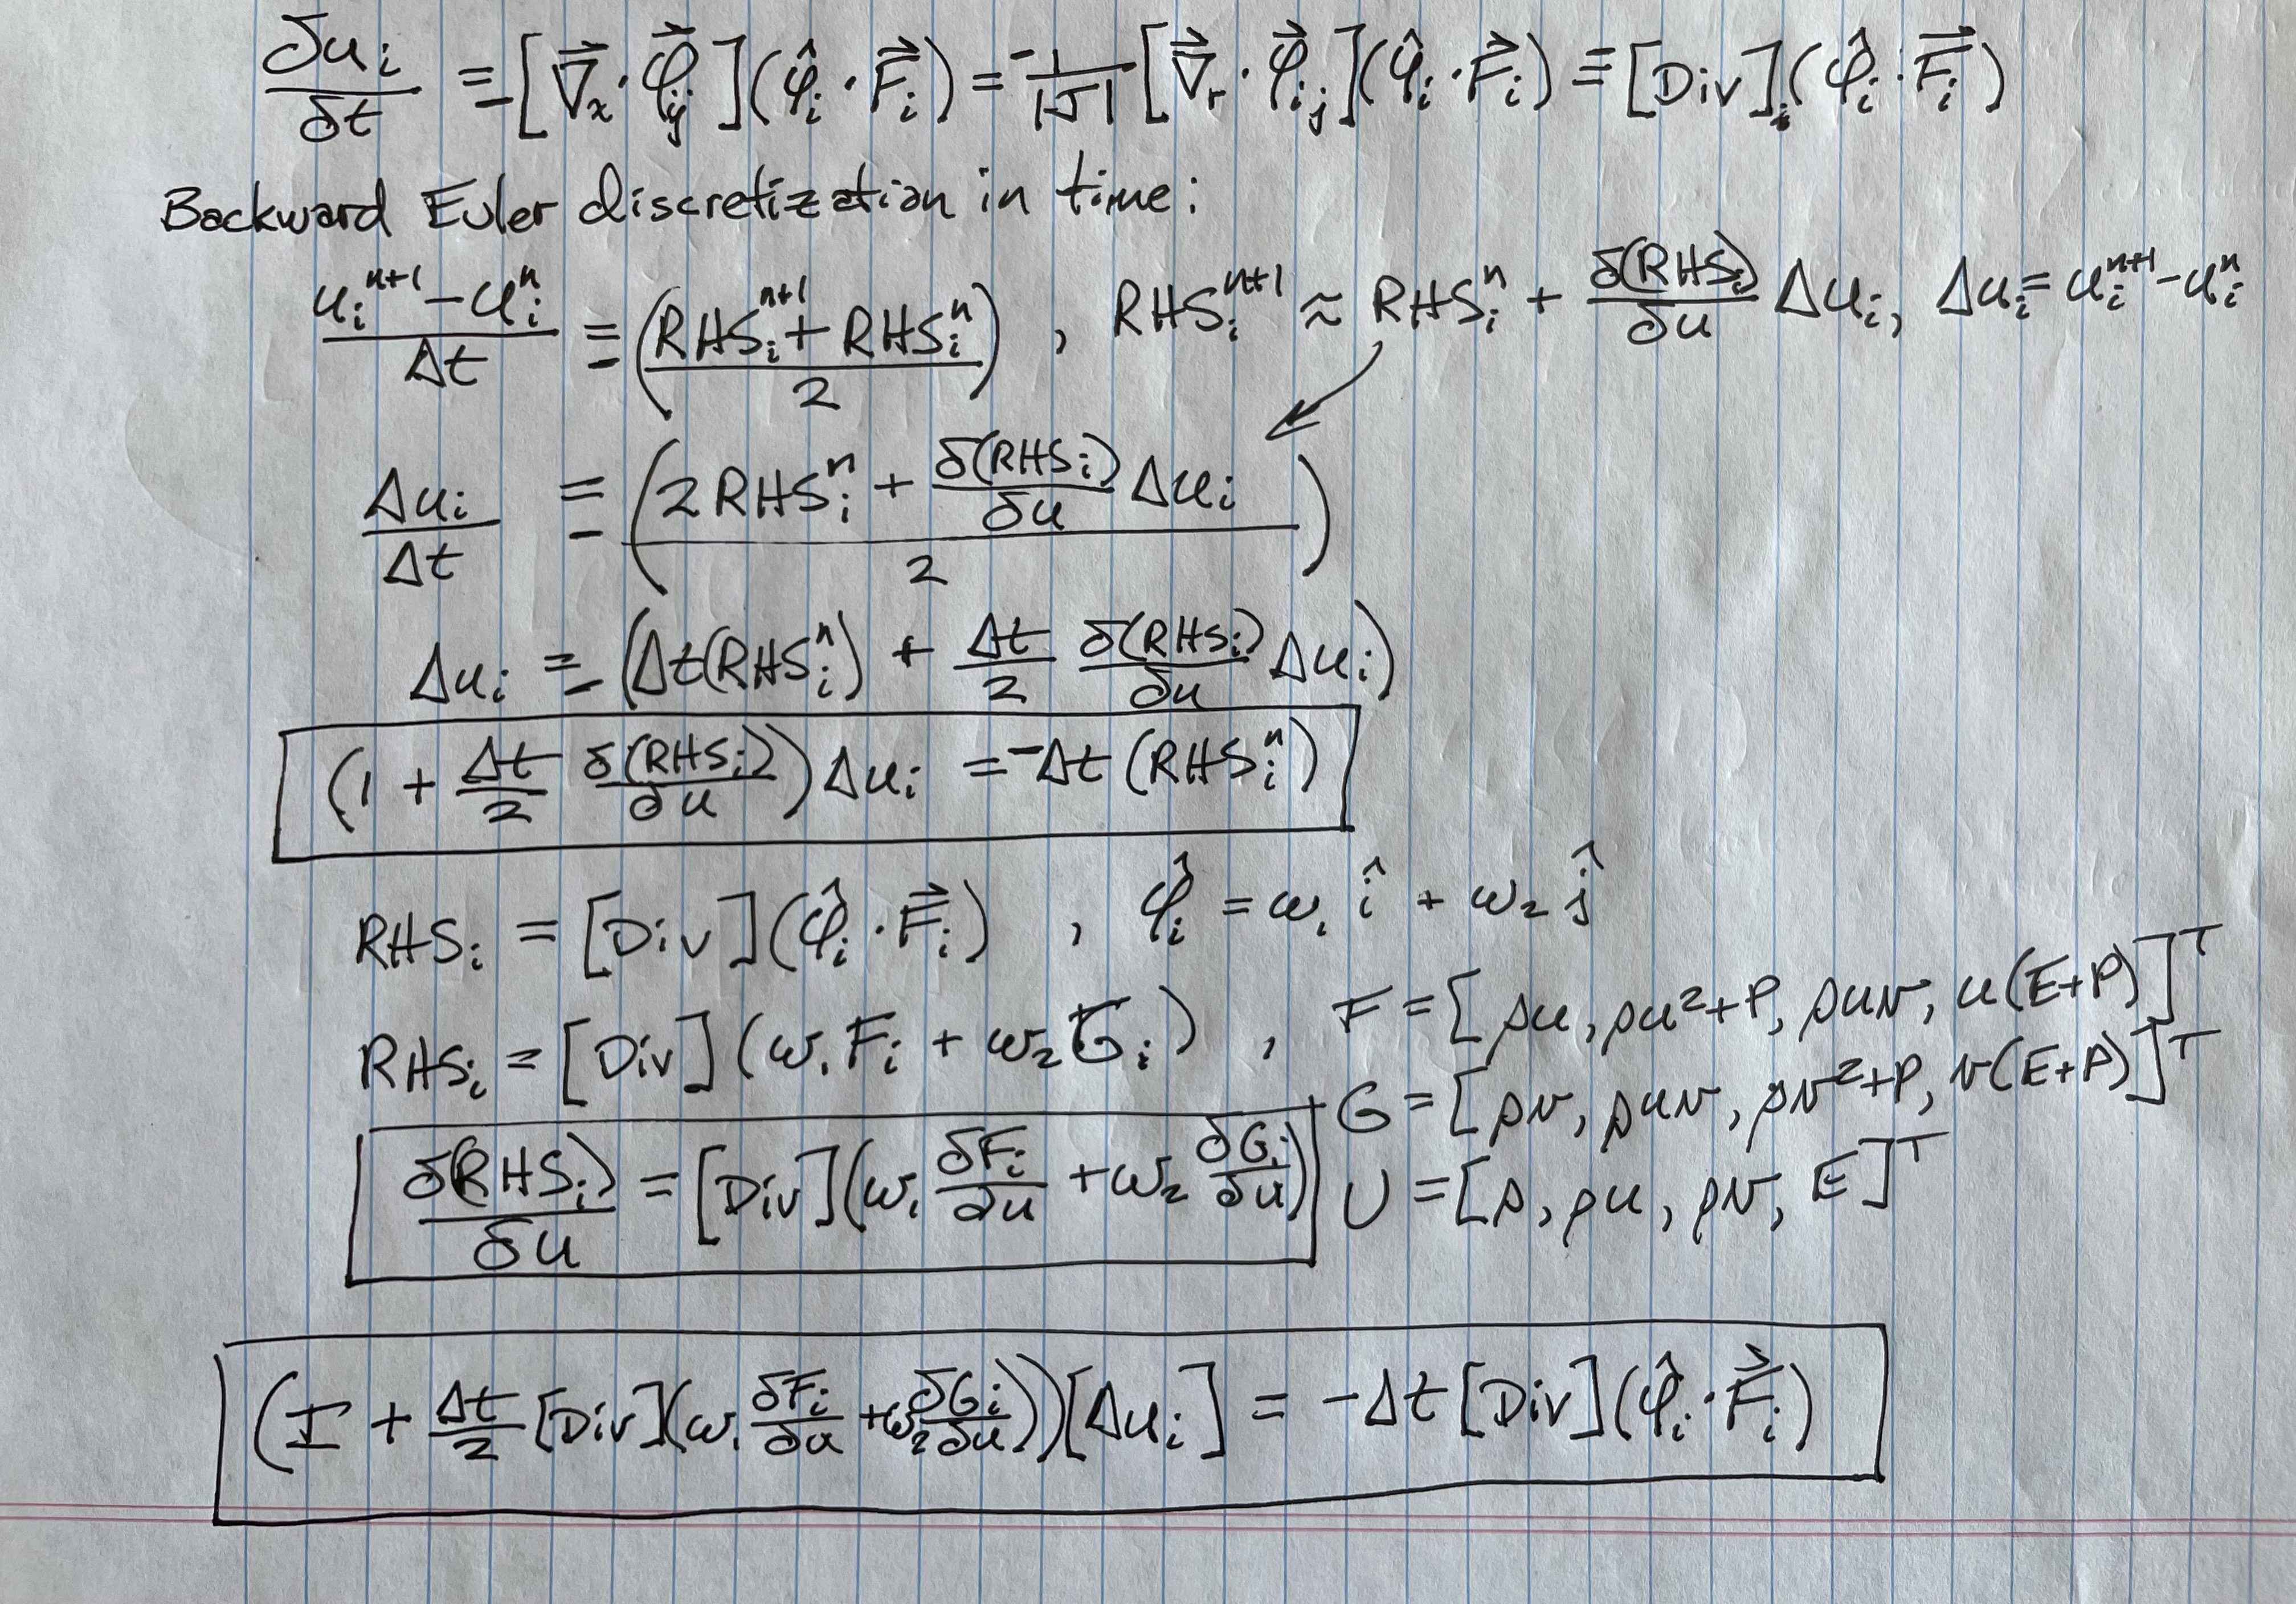 δuᵢ/δt = -[∇⃗ₓ·φ⃗ᵢⱼ](φ̂ᵢ·F⃗ᵢ) = -1/|J| [∇⃗ᵣ·φ⃗ᵢⱼ](φ̂ᵢ·F⃗ᵢ) ≡ -[Div]ᵢ(φ̂ᵢ·F⃗ᵢ)
Backward Euler discretization in time:
(uᵢⁿ⁺¹ - uᵢⁿ)/Δt = -((RHSᵢⁿ⁺¹ + RHSᵢⁿ)/2) , RHSᵢⁿ⁺¹ ≈ RHSᵢⁿ + δ(RHSᵢ)/δu Δuᵢ, Δuᵢ = uᵢⁿ⁺¹ - uᵢⁿ
Δuᵢ/Δt = -((2RHSᵢⁿ + δ(RHSᵢ)/δu Δuᵢ)/2)
Δuᵢ = -(Δt(RHSᵢⁿ) + Δt/2 δ(RHSᵢ)/δu Δuᵢ)
(1 + Δt/2 δ(RHSᵢ)/δu)Δuᵢ = -Δt(RHSᵢⁿ)
RHSᵢ = [Div](φ̂ᵢ·F⃗ᵢ) , φ̂ᵢ = ω₁î + ω₂ĵ
RHSᵢ = [Div](ω₁Fᵢ + ω₂Gᵢ) , F = [ρu, ρu²+P, ρuv, u(E+P)]ᵀ
G = [ρv, ρuv, ρv²+P, v(E+P)]ᵀ
δ(RHSᵢ)/δu = [Div](ω₁ δFᵢ/δu + ω₂ δGᵢ/δu)
U = [ρ, ρu, ρv, E]ᵀ
(I + Δt/2 [Div](ω₁ δFᵢ/δu + ω₂ δGᵢ/δu))[Δuᵢ] = -Δt[Div](φ̂ᵢ·F⃗ᵢ)